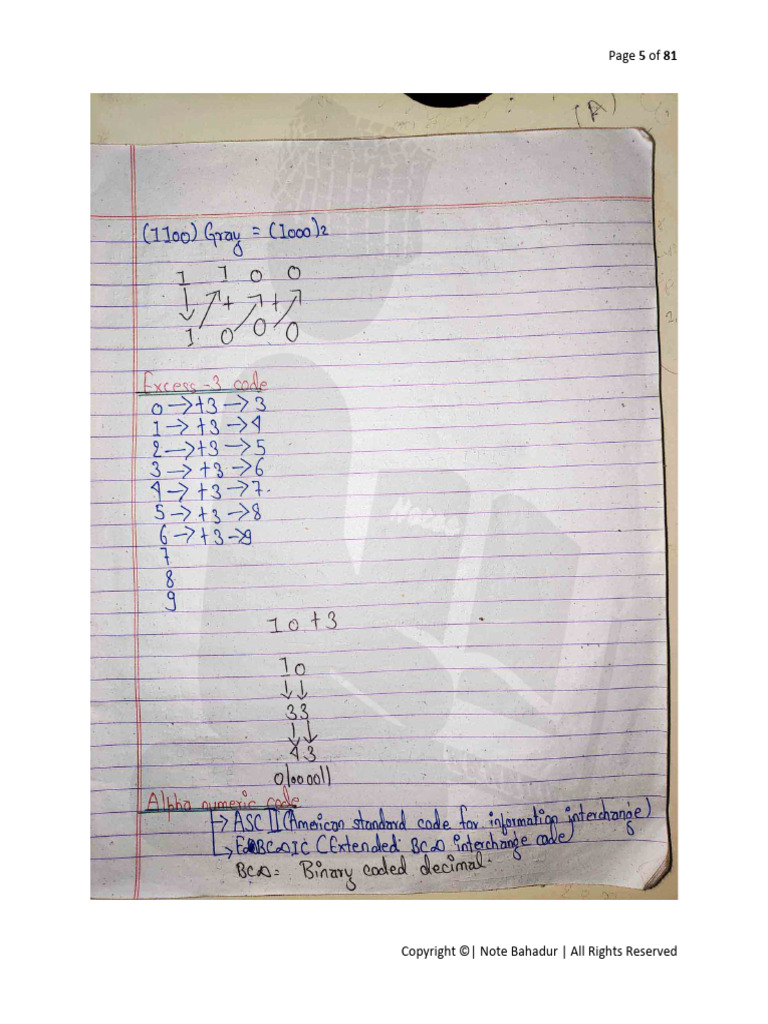 Page 5 of 81
(A)
(1100) Gray = (1000)2
1 1 0 0
+ +
1 0 0 0
Excess-3 code
0 → +3 → 3
1 → +3 → 4
2 → +3 → 5
3 → +3 → 6
4 → +3 → 7.
5 → +3 → 8
6 → +3 → 9
7
8
9
10 + 3
10
↓↓
33
↓↓
43
01000011
Alpha numeric code
→ ASCII (American standard code for information interchange)
→ EBCDIC (Extended BCD interchange code)
BCD = Binary coded decimal.
Copyright ©| Note Bahadur | All Rights Reserved